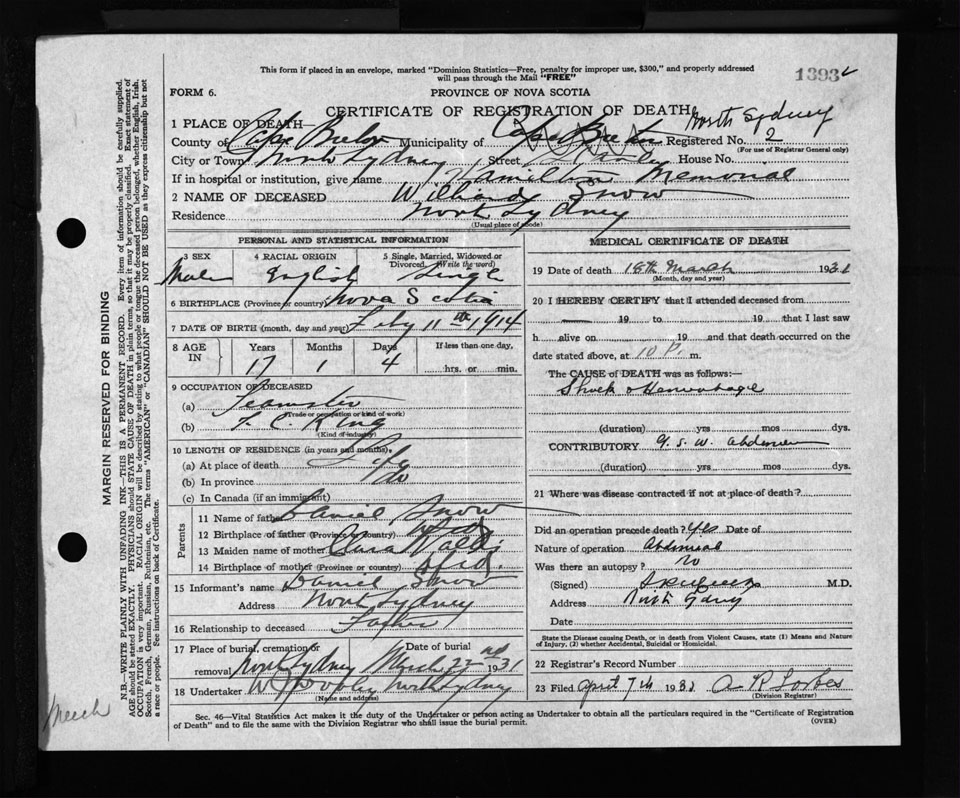 This form if placed in an envelope, marked "Dominion Statistics—Free, penalty for improper use, $300," and properly addressed
will pass through the Mail "FREE"
1393
FORM 6.
PROVINCE OF NOVA SCOTIA
CERTIFICATE OF REGISTRATION OF DEATH
North Sydney
1 PLACE OF DEATH—
County of Cape Breton Municipality of Cape Breton Registered No. 2
(For use of Registrar General only)
City or Town North Sydney Street House No.
If in hospital or institution, give name Hamilton Memorial
2 NAME OF DECEASED William Snow
Residence North Sydney
(Usual place of abode)
PERSONAL AND STATISTICAL INFORMATION
3 SEX
Male
4 RACIAL ORIGIN
English
5 Single, Married, Widowed or
Divorced. (Write the word)
Single
6 BIRTHPLACE (Province or country) Nova Scotia
7 DATE OF BIRTH (month, day and year) Feby 11th 1914
8 AGE IN
Years Months Days If less than one day,
17 1 4 hrs. or min.
9 OCCUPATION OF DECEASED
(a) Teamster
(Trade or occupation or kind of work)
(b) C. King
(Kind of industry)
10 LENGTH OF RESIDENCE (in years and months).
(a) At place of death Life
(b) In province do
(c) In Canada (if an immigrant)
Parents
11 Name of father Daniel Snow
12 Birthplace of father (Province or country) Nfld
13 Maiden name of mother Clara
14 Birthplace of mother (Province or country) Nfld.
15 Informant's name Daniel Snow
Address North Sydney
16 Relationship to deceased Father
17 Place of burial, cremation or
removal North Sydney
Date of burial
March 22nd 1931
18 Undertaker North Sydney
(Name and address)
MEDICAL CERTIFICATE OF DEATH
19 Date of death 18th March 1931
(Month, day and year)
20 I HEREBY CERTIFY that I attended deceased from
19 to 19 that I last saw
h alive on , 19 and that death occurred on the
date stated above, at 10 P. m.
The CAUSE of DEATH was as follows:—
Shock & Hemorrhage
(duration) yrs mos dys.
CONTRIBUTORY G. S. W. Abdomen
(duration) yrs mos dys.
21 Where was disease contracted if not at place of death?
Did an operation precede death? Yes Date of
Nature of operation Abdominal
Was there an autopsy? No
(Signed) M.D.
Address North Sydney
Date
State the Disease causing Death, or in death from Violent Causes, state (1) Means and Nature
of Injury, (2) whether Accidental, Suicidal or Homicidal.
22 Registrar's Record Number
23 Filed April 7th 1931 A R Forbes
(Division Registrar)
Sec. 46—Vital Statistics Act makes it the duty of the Undertaker or person acting as Undertaker to obtain all the particulars required in the "Certificate of Registration
of Death" and to file the same with the Division Registrar who shall issue the burial permit.
(OVER)
MARGIN RESERVED FOR BINDING
N.B.—WRITE PLAINLY WITH UNFADING INK—THIS IS A PERMANENT RECORD. Every item of information should be carefully supplied.
AGE should be stated EXACTLY. PHYSICIANS should STATE CAUSE OF DEATH in plain terms, so that it may be properly classified. Exact statement of
OCCUPATION is very important. RACIAL ORIGIN will be described by stating to what people or tongue the deceased person belonged, whether English, Irish,
Scotch, French, German, Russian, Ruthenian, etc. The terms "AMERICAN" or "CANADIAN" SHOULD NOT BE USED as they express citizenship but not
a race or people. See instructions on back of Certificate.